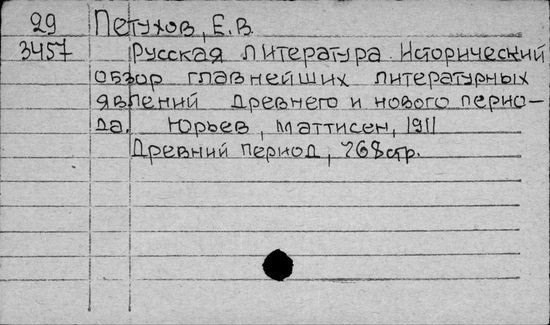 29 Петухов, Е.В.
3457 Русская литература. Исторический
обзор главнейших литературных
явлений древнего и нового перио-
да. Юрьев, Маттисен, 1911
Древний период, 268стр.